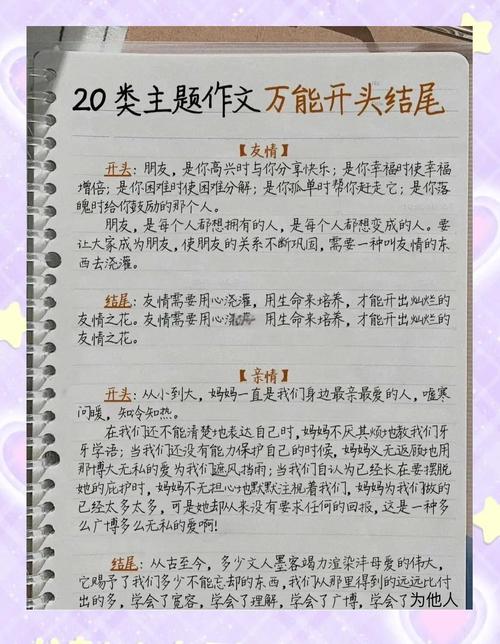 20类主题作文万能开头结尾
【友情】
开头：朋友，是你高兴时与你分享快乐；是你幸福时使幸福
增倍；是你困难时使困难分解；是你孤单时帮你赶走它；是你落
魄时给你鼓励的那个人。
朋友，是每个人都想拥有的人，是每个人都想变成的人。要
让大家成为朋友，使朋友的关系不断巩固，需要一种叫友情的东
西去浇灌。
结尾：友情需要用心浇灌，用生命来培养，才能开出灿烂的
友情之花。友情需要用心浇灌，用生命来培养，才能开出灿烂的
友情之花。
【亲情】
开头：从小到大，妈妈一直是我们身边最亲最爱的人，嘘寒
问暖，知冷知热。
在我们还不能清楚地表达自己时，妈妈不厌其烦地教我们牙
牙学语；当我们还没有能力保护自己的时候，妈妈义无返顾地用
那博大无私的爱为我们遮风挡雨；当我们自认为已经长在要摆脱
她的庇护时，妈妈不无担心地默默注视着我们，妈妈为我们做的
已经太多太多，可是她却从来没有要求任何的回报，这是一种多
么广博多么无私的爱啊！
结尾：从古至今，多少文人墨客竭力渲染沣母爱的伟大，
它赐予了我们多少不能忘却的东西，我们从那里得到的远远比付
出的多，学会了宽容，学会了理解，学会了广博，学会了为他人